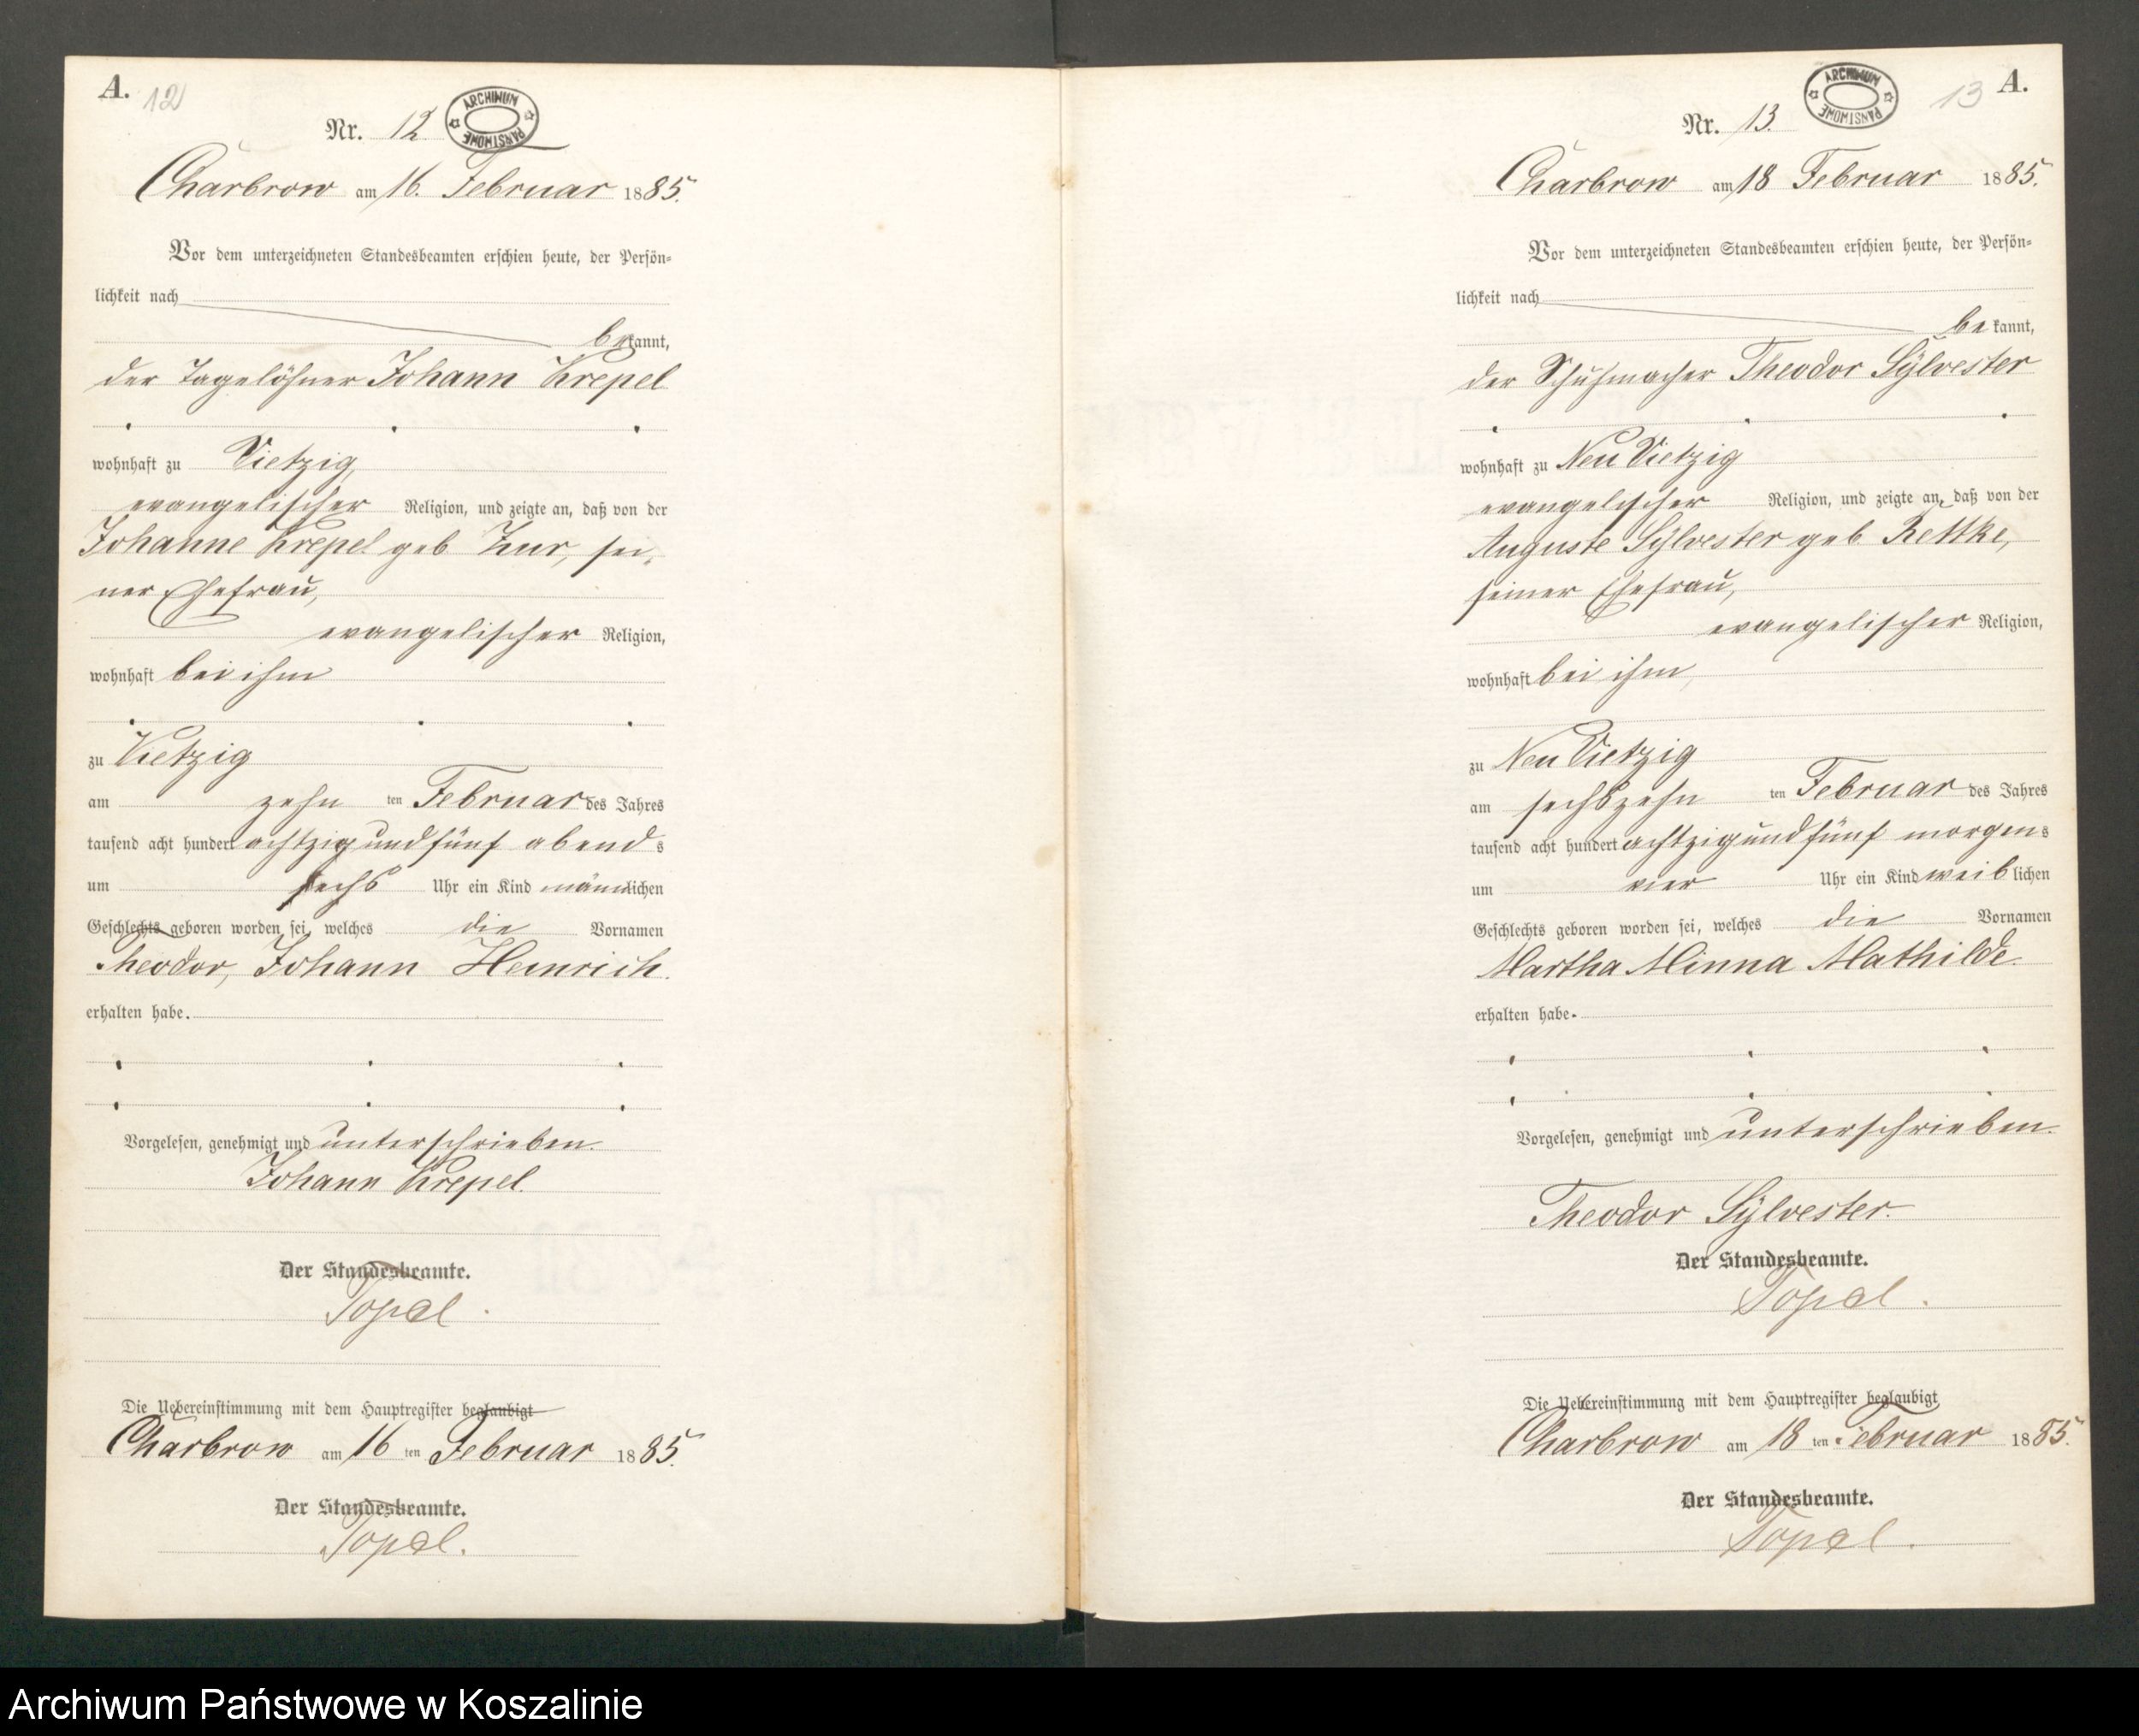 A.
12
Nr. 12
ARCHIWUM PAŃSTWOWE
Charbrow am 16. Februar 1885.
Vor dem unterzeichneten Standesbeamten erschien heute, der Persön-
lichkeit nach
bekannt,
der Tagelöhner Johann Krepel
wohnhaft zu Vietzig,
evangelischer Religion, und zeigte an, daß von der
Johanne Krepel geb Zur, sei-
ner Ehefrau,
evangelischer Religion,
wohnhaft bei ihm
zu Vietzig
am zehn ten Februar des Jahres
tausend acht hundert achtzig und fünf abends
um sechs Uhr ein Kind männlichen
Geschlechts geboren worden sei, welches die Vornamen
Theodor, Johann Heinrich.
erhalten habe.
Vorgelesen, genehmigt und unterschrieben.
Johann Krepel.
Der Standesbeamte.
Topel.
Die Uebereinstimmung mit dem Hauptregister beglaubigt
Charbrow am 16 ten Februar 1885.
Der Standesbeamte.
Topel.
ARCHIWUM PAŃSTWOWE
13
A.
Nr. 13.
Charbrow am 18 Februar 1885.
Vor dem unterzeichneten Standesbeamten erschien heute, der Persön-
lichkeit nach
bekannt,
der Schuhmacher Theodor Sylvester
wohnhaft zu Neu Vietzig
evangelischer Religion, und zeigte an, daß von der
Auguste Sylvester geb. Rettke,
seiner Ehefrau,
evangelischer Religion,
wohnhaft bei ihm,
zu Neu Vietzig
am sechszehn ten Februar des Jahres
tausend acht hundert achtzig und fünf morgens
um vier Uhr ein Kind weiblichen
Geschlechts geboren worden sei, welches die Vornamen
Martha Minna Mathilde.
erhalten habe.
Vorgelesen, genehmigt und unterschrieben.
Theodor Sylvester.
Der Standesbeamte.
Topel.
Die Uebereinstimmung mit dem Hauptregister beglaubigt
Charbrow am 18 ten Februar 1885.
Der Standesbeamte.
Topel.
Archiwum Państwowe w Koszalinie